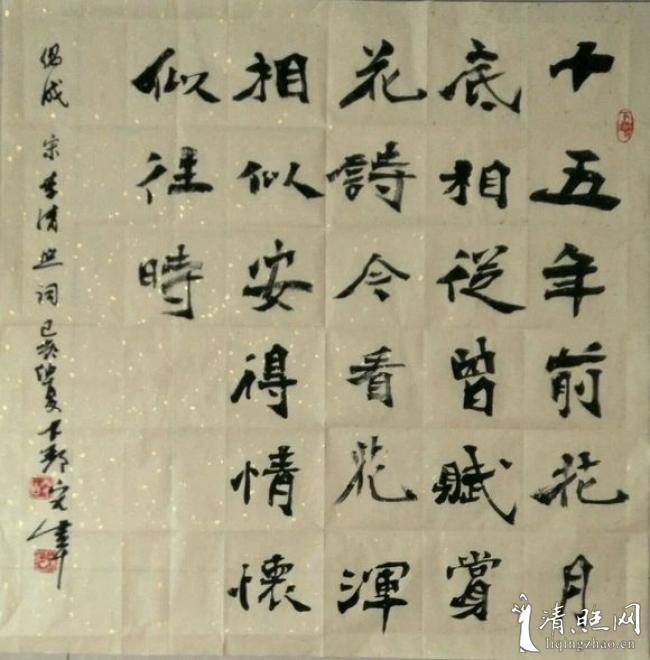 十五年前花月
底相從曾賦賞
花詩今看花渾
相似安得情懷
似往時
偶成 宋李清照词 己亥
清照网
liqingzhao.cn